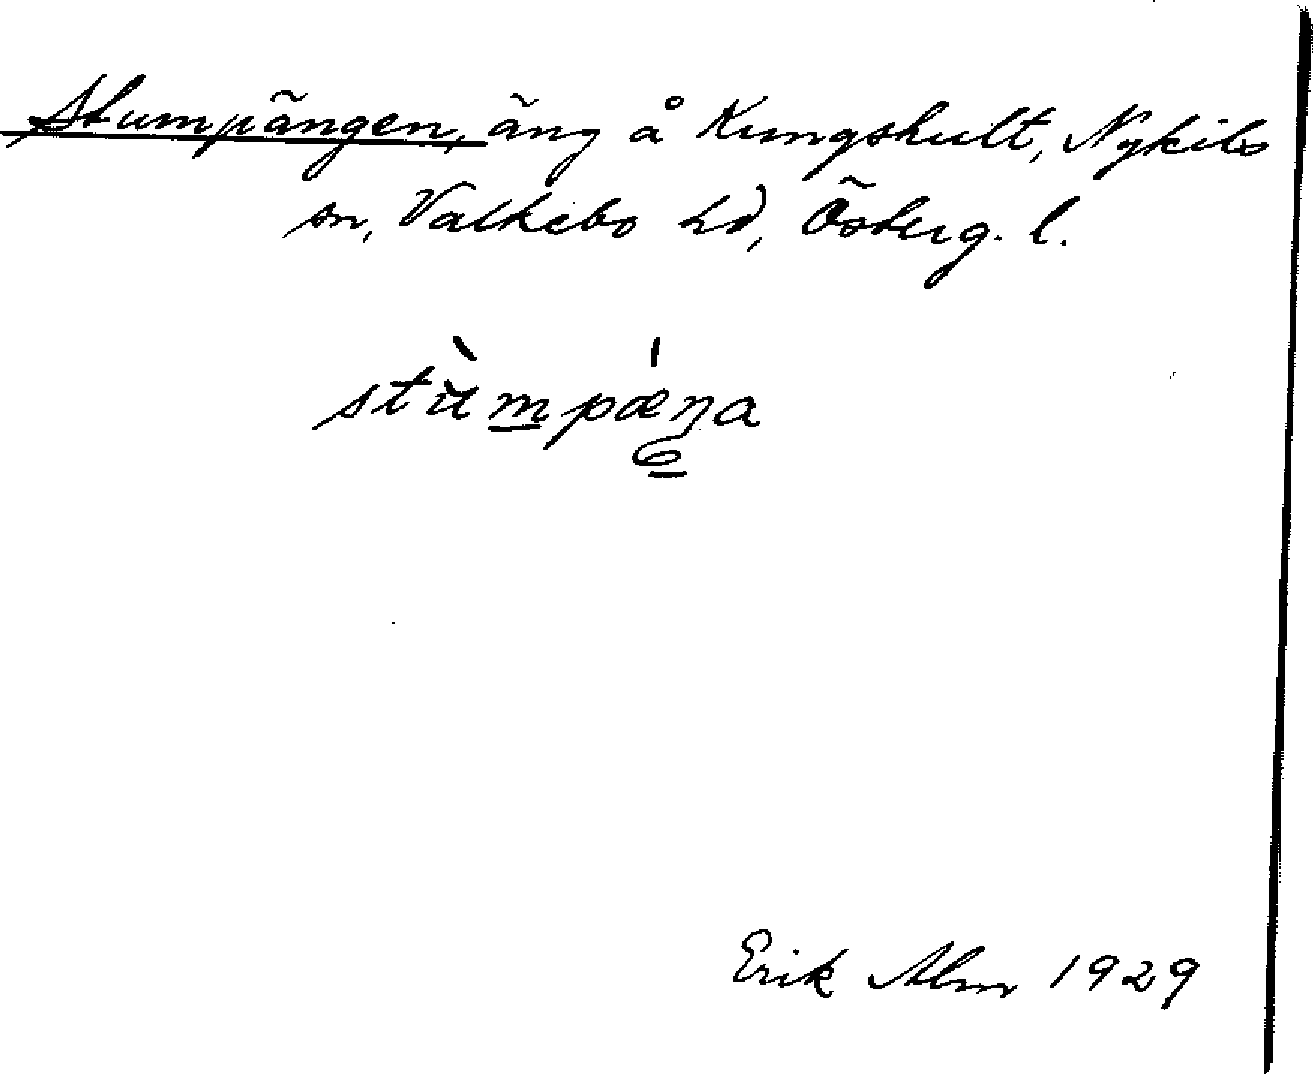 Stumpängen, äng å Kungshult, Nykils
sn, Valkebo hd, Österg. l.
stu̇̀m̲pǽŋa
Erik Alm 1929